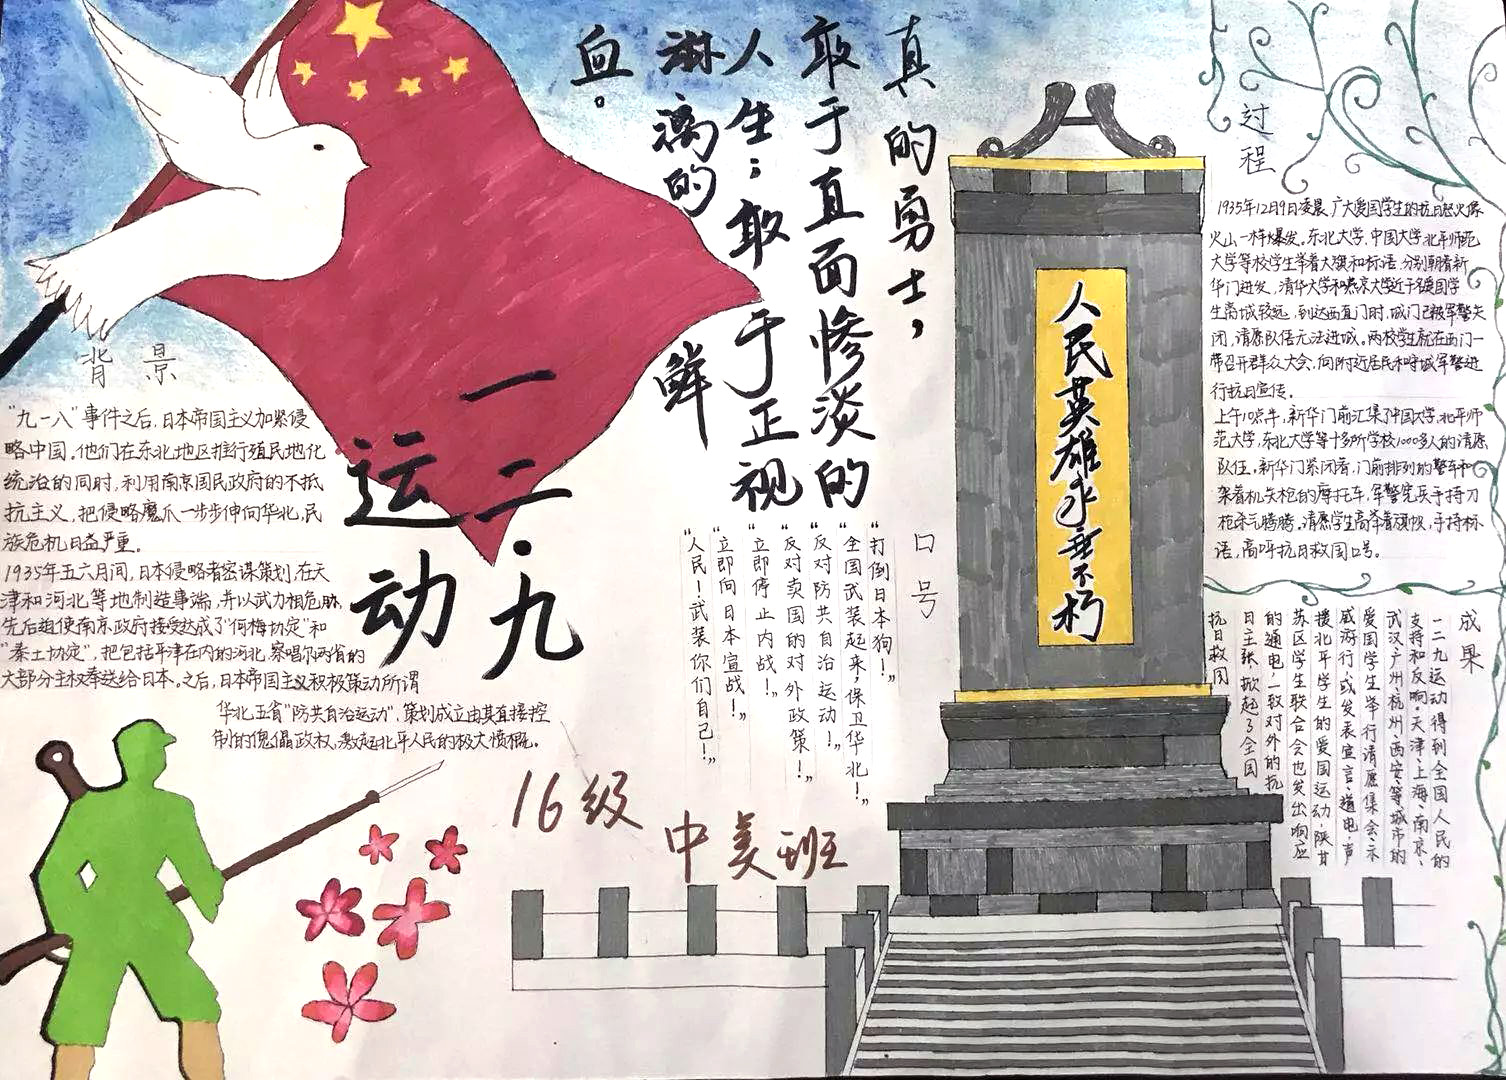 真的勇士，
敢于直面惨淡的
人生；敢于正视
淋漓的鲜
血。
一二·九
运动
背景
“九一八”事件之后，日本帝国主义加紧侵
略中国。他们在东北地区推行殖民地化
统治的同时，利用南京国民政府的不抵
抗主义，把侵略魔爪一步步伸向华北，民
族危机日益严重。
1935年五六月间，日本侵略者密谋策划，在天
津和河北等地制造事端，并以武力相危胁，
先后迫使南京政府接受达成了“何梅协定”和
“秦土协定”，把包括平津在内的河北、察
大部分主权奉送给日本。之后，日本帝国主义积极策动所谓
华北五省“防共自治运动”，策划成立由其直接控
制的傀儡政权，激起北平人民的极大愤慨。
口号
“打倒日本狗！”
“全国武装起来，保卫华北！”
“反对防共自治运动！”
“反对卖国的对外政策！”
“立即停止内战！”
“立即向日本宣战！”
“人民！武装你们自己！”
16级
中美班
人民英雄永垂不朽
过程
1935年12月9日凌晨，广大爱国学生的抗日怒火像
火山一样爆发。东北大学，中国大学，北平师范
大学等校学生举着大旗和标语，分别朝着新
华门进发，清华大学和燕京大学近千名爱国学
生离城较远，到达西直门时，城门已被军警关
闭，请愿队伍无法进城。两校学生就在西门一
带召开群众大会，向附近居民和守城军警进
行抗日宣传。
上午10点半，新华门前汇集了中国大学，北平师
范大学，东北大学等十多所学校1000多人的请愿
队伍。新华门紧闭着，门前排列的警车和
架着机关枪的摩托车，军警宪兵手持刀
枪杀气腾腾。请愿学生高举着旗帜，手持标
语，高呼抗日救国口号。
成果
一二九运动得到全国人民的
支持和反响。天津、上海、南京、
武汉、广州、杭州、西安等城市的
爱国学生举行请愿集会、示
威游行，或发表宣言、通电，声
援北平学生的爱国运动。陕甘
苏区学生联合会也发出响应
的通电，一致对外的抗
日主张，掀起了全国
抗日救国